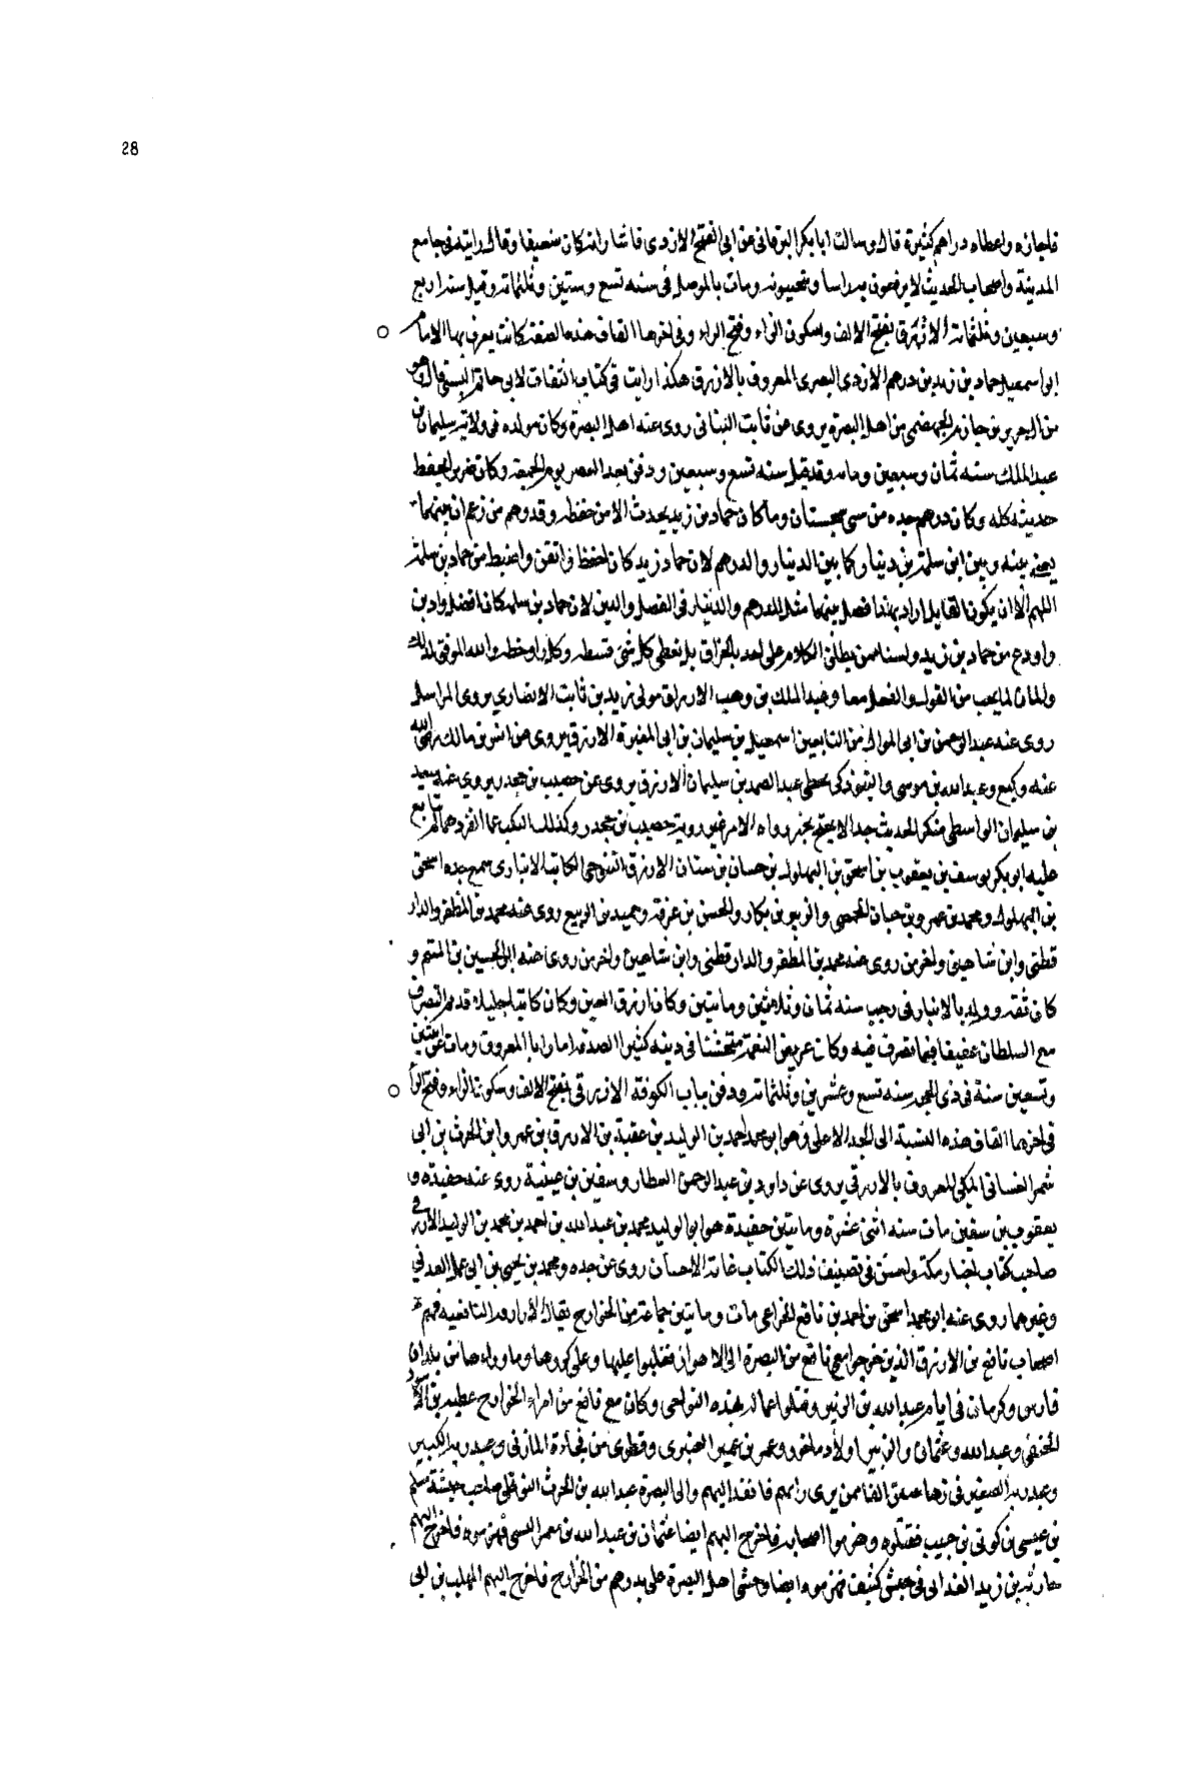 28
فاجازه واعطاه دراهم كثيرة قال وسالت ابا بكر البرقانى عن ابى الفتح الازدى فاشار انه كان ضعيفا وقال رايته فى جامع
المدينة واصحاب الحديث لا يرفعون به راسا ويتجنبونه ومات بالموصل فى سنه تسع وستين وثلثمائه وقيل سنه اربع
وسبعين وثلثمائه الازرق بفتح الالف وسكون الزاء وفتح الراء وفى اخرها القاف هذه الصفة كانت يعرف بها الامام
ابو اسمعيل حماد بن زيد بن درهم الازدى البصرى المعروف بالازرق هكذا رايت فى كتاب الثقات لابى حاتم البستى قال وهو
من ال جرير بن حازم الجهضمى من اهل البصرة يروى عن ثابت البنانى روى عنه اهل البصرة وكان مولده فى ولاية سليمان بن
عبد الملك سنه ثمان وسبعين ومات وقد قيل سنه تسع وسبعين ودفن بعد العصر يوم الجمعة وكان ضريرا يحفظ
حديثه كله وكان درهم جده من سبى سجستان وما كان حماد بن زيد يحدث الا من حفظه وقد وهم من زعم ان بينهما
بينه وبين ابن سلمة بن دينار كما بين الدينار والدرهم لان حماد زيد كان احفظ واتقن واضبط من حماد بن سلمة
اللهم الا ان يكون القايل اراد بهذا فصل بينهما مثل الدرهم والدينار فى الفضل والدين لان حماد بن سلمه كان افضل وادين
واورع من حماد بن زيد ولسنا ممن يطلق الكلام على احد بالجزاف بل نعطى كل شئ قسطه وكل راو حظه والله الموفق لذلك
روى عنه عبد الرحمن بن ابى الموال من التابعين اسمعيل بن سليمان بن ابى المغيرة الازرق يروى عن انس بن مالك رضى الله
عنه وكيع وعبد الله بن موسى عبد الصمد بن سليمان الازرق يروى عن خصيب بن جحدر يروى عنه سعيد
بن سليمان الواسطى منكر الحديث جدا خصيب بن جحدر
عليه ابو بكر يوسف بن يعقوب بن اسحق بن البهلول بن حسان بن سنان الازرق التنوخى الكاتب الانبارى سمع جده اسحق
بن البهلول ومحمد بن عمرو بن حبان الحمصى والزبير بن بكار والحسن بن عرفة وحميد بن الربيع روى عنه محمد بن المظفر والدار
قطنى وابن شاهين واخر من روى عنه محمد بن المظفر والدارقطنى وابن شاهين واخر من روى عنه ابو الحسين بن المتيم و
كان ثقه وولد بالانبار فى رجب سنه ثمان وثلاثين ومائتين وكان ازرق العين وكان كاتبا جليلا قديم التصرف
مع السلطان عفيفا فيما تصرف فيه وكان عريض النعمة متخشنا فى دينه كثير الصدقة امارا بالمعروف ومات عن اثنتين
وتسعين سنة فى ذى الحجه سنه تسع وعشرين وثلثمائه ودفن بباب الكوفة الازرقى بفتح الالف وسكون الزاء وفتح الراء
فى اخرها القاف هذه النسبة الى الجد الاعلى وهو ابو محمد احمد بن الوليد بن عقبة بن الازرق بن عمرو ابن الحرث بن ابى
شمر الغسانى المكى المعروف بالازرقى يروى عن داود بن عبد الرحمن العطار وسفين بن عيينة روى عنه حفيده و
يعقوب بن سفين مات سنه اثنى عشرة ومائتين حفيده هو ابو الوليد محمد بن عبد الله بن احمد بن محمد بن الوليد الازرقى
صاحب كتاب اخبار مكة واحسن فى تصنيف ذلك الكتاب غاية الاحسان روى عن جده ومحمد بن يحيى بن ابى عمر العدنى
وغيرهما روى عنه ابو محمد اسحق بن احمد بن نافع الخزاعى مات ومائتين جماعة من الخوارج يقال لهم الازارقه فهم
اصحاب نافع بن الازرق الذين خرجوا مع نافع من البصرة الى الاهواز فغلبوا عليها وعلى كورها وما وراءها من بلدان
فارس وكرمان فى ايام عبد الله بن الزبير وقتلوا عماله بهذه النواحى وكان مع نافع من امراء الخوارج عطيه بن الاسود
الحنفى وعبد الله وعثمان والزبير اولاد ماخور وعمر بن عمير العنبرى وقطرى بن فجاءة المازنى وعبد ربه الكبير
وعبد ربه الصغير فى زهاء الفا ممن يرى رايهم فانفذ اليهم والى البصرة عبد الله بن الحرث النوفلى صاحب جيشه مسلم
بن عبيس بن كريز بن حبيب فقتلوه وهزموا اصحابه فاخرج اليهم ايضا عثمان بن عبد الله بن معمر التيمى فهزموه فاخرج اليهم
حارثة بن زيد الغدانى فى جيش كثيف فهزموه ايضا وخشى اهل البصرة على بلدهم من الخوارج فاخرج اليهم المهلب بن ابى